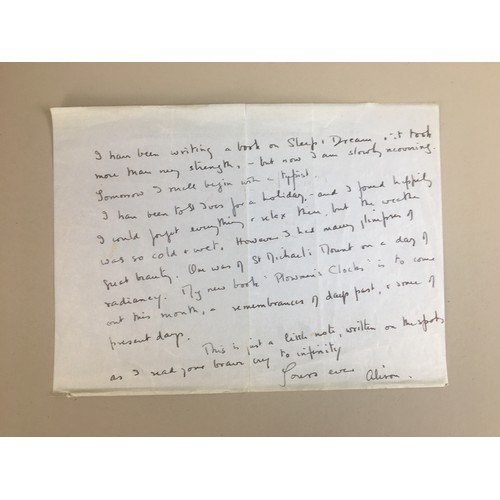 I have been writing a book on Sleep & Dream & it took
more than my strength, - but now I am slowly recovering.
Tomorrow I shall begin with a typist.
I have been to St Ives for a holiday, - and I found happily
I could forget everything & relax there, but the weather
was so cold & wet. However I had many glimpses of
great beauty. One was of St Michael's Mount on a day of
radiancy. My new book 'Plowmen's Clocks' is to come
out this month, a remembrances of days past, & some of
present days.
This is just a little note, written on the spot,
as I read your brave cry to infinity
Yours ever Alison.